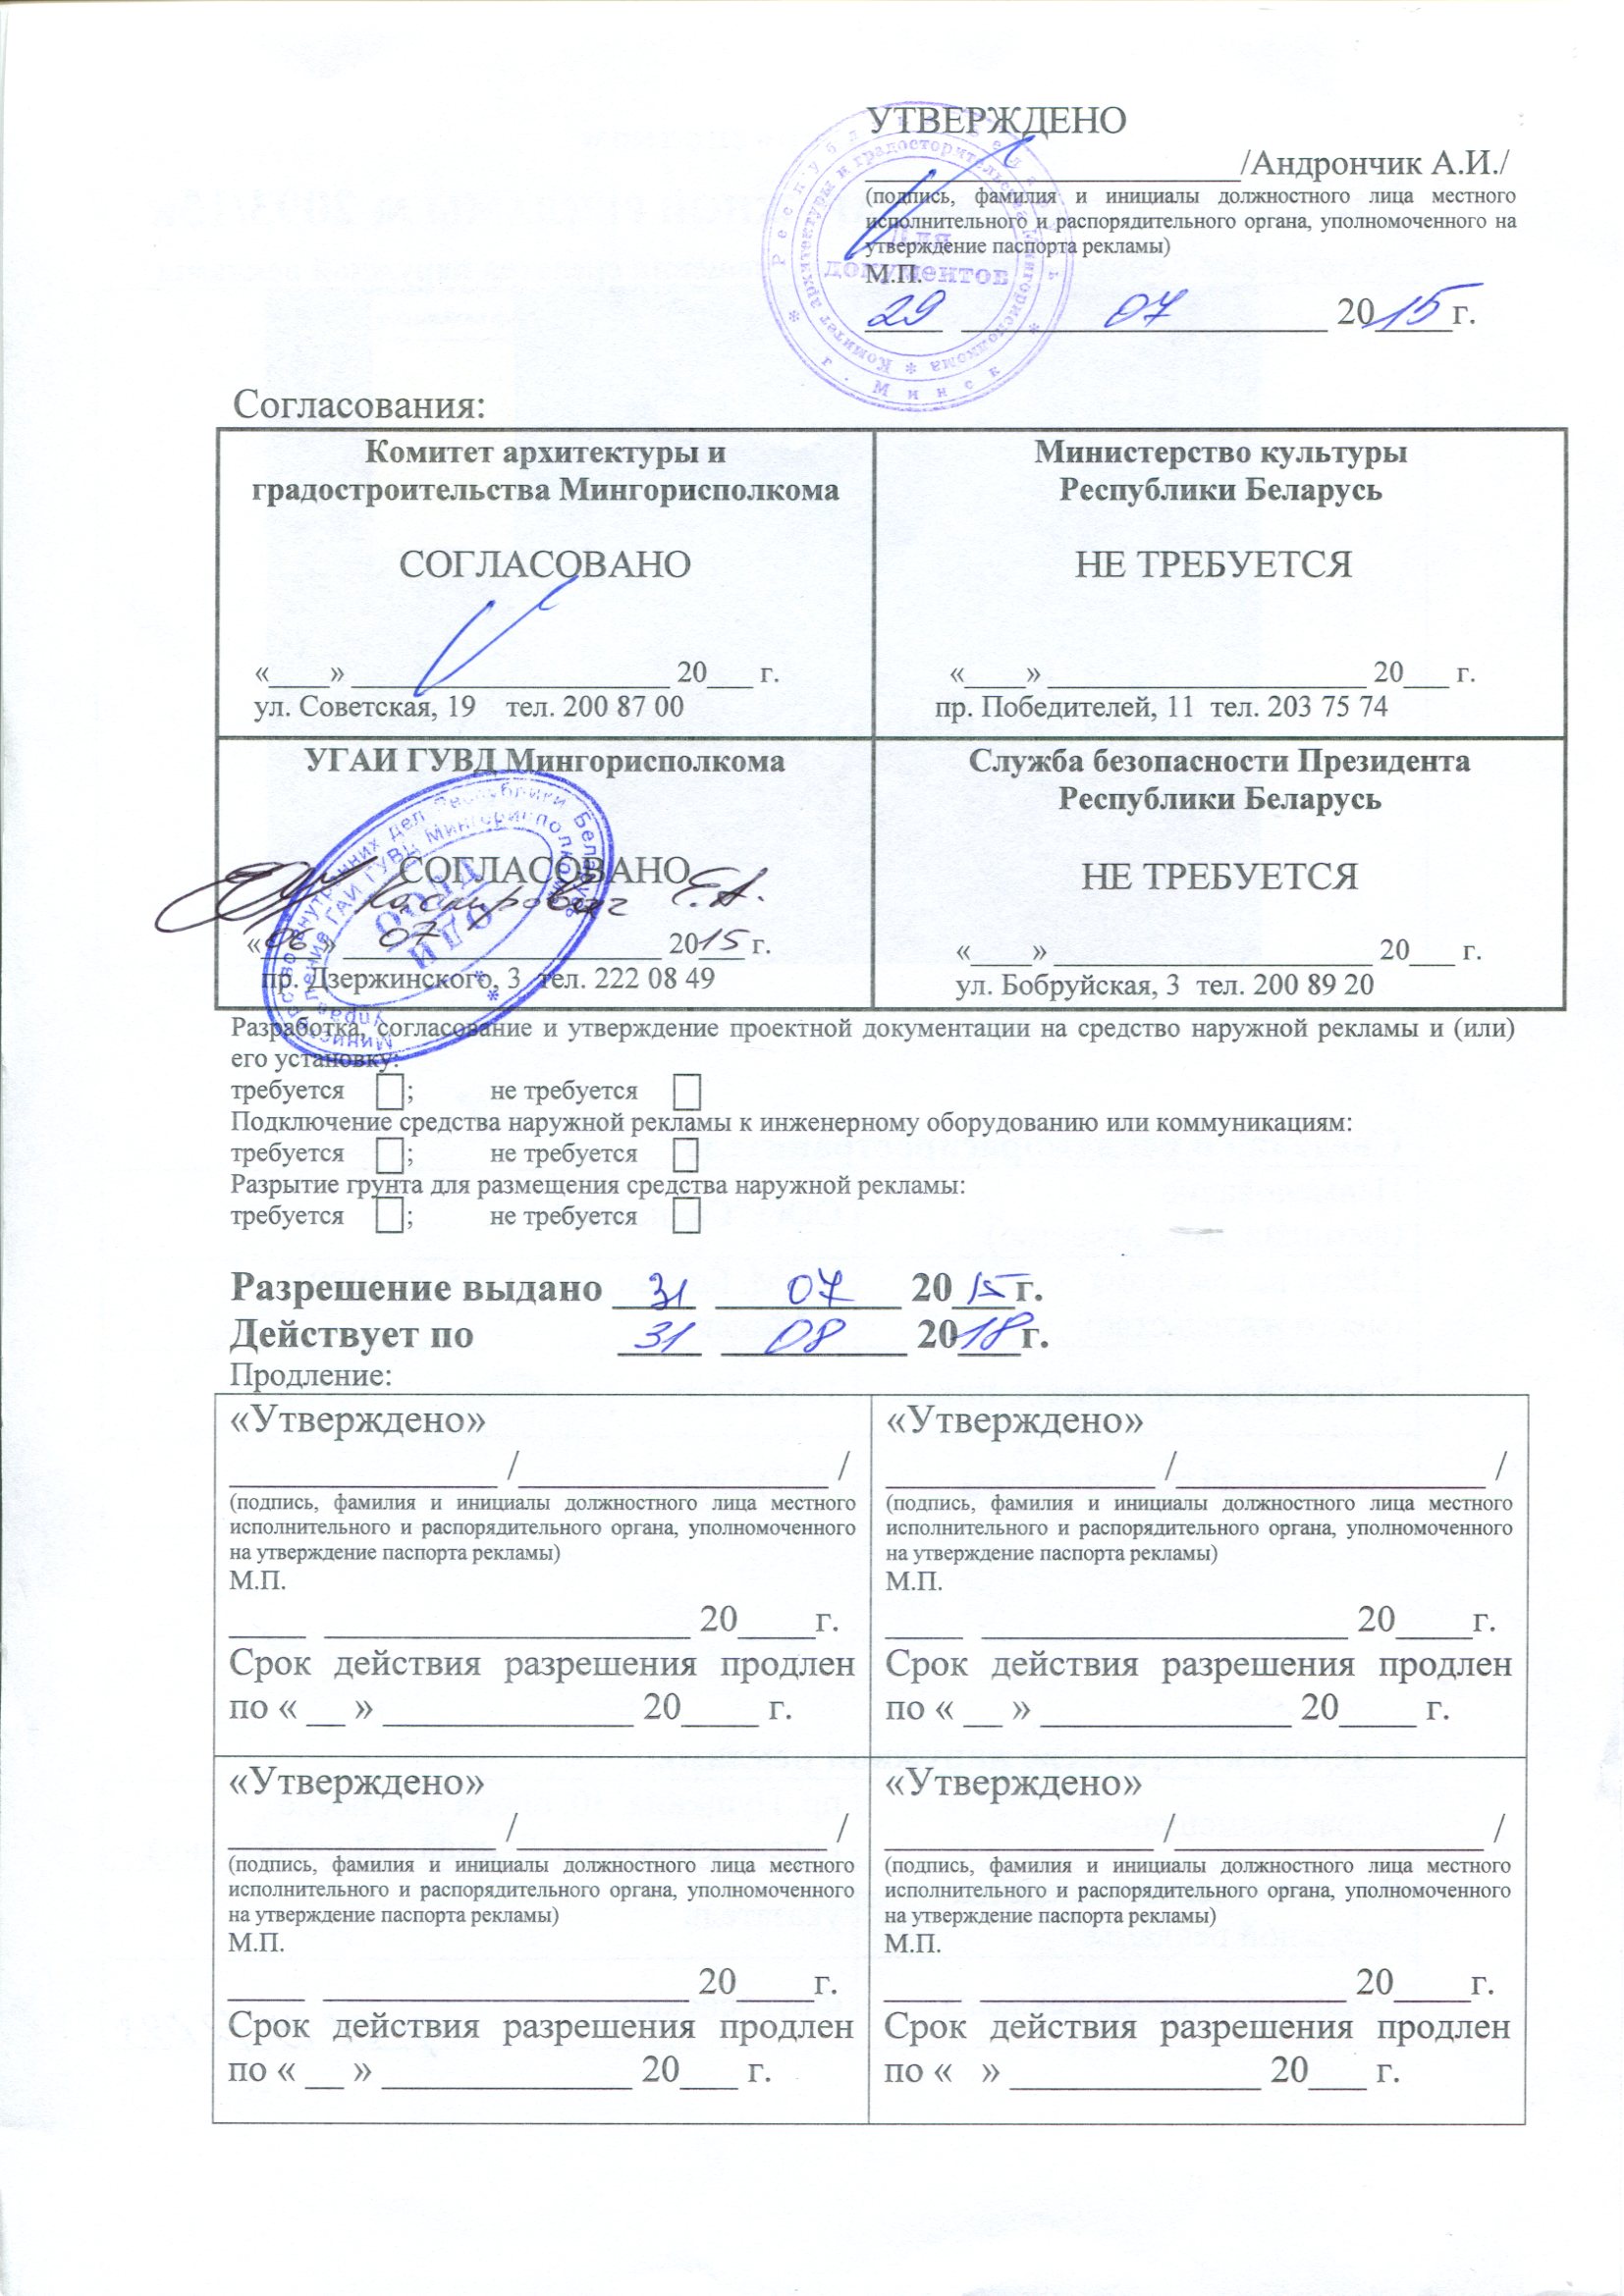 УТВЕРЖДЕНО
____________________/Андрончик А.И./
(подпись, фамилия и инициалы должностного лица местного
исполнительного и распорядительного органа, уполномоченного на
утверждение паспорта рекламы)
М.П.
29 07 2015г.
Республика Беларусь * г. Минск *
Комитет архитектуры и градостроительства Мингорисполкома *
для
документов
Согласования:
Комитет архитектуры и
градостроительства Мингорисполкома
СОГЛАСОВАНО
«____» ____________________ 20___ г.
ул. Советская, 19 тел. 200 87 00
Министерство культуры
Республики Беларусь
НЕ ТРЕБУЕТСЯ
«____» ____________________ 20___ г.
пр. Победителей, 11 тел. 203 75 74
УГАИ ГУВД Мингорисполкома
СОГЛАСОВАНО
Е.А.
«06» 07 2015 г.
пр. Дзержинского, 3 тел. 222 08 49
Министерство внутренних дел Республики Беларусь
Управление ГАИ ГУВД Мингорисполкома
Служба безопасности Президента
Республики Беларусь
НЕ ТРЕБУЕТСЯ
«____» ____________________ 20___ г.
ул. Бобруйская, 3 тел. 200 89 20
Разработка, согласование и утверждение проектной документации на средство наружной рекламы и (или)
его установку:
требуется ; не требуется
Подключение средства наружной рекламы к инженерному оборудованию или коммуникациям:
требуется ; не требуется
Разрытие грунта для размещения средства наружной рекламы:
требуется ; не требуется
Разрешение выдано 31 07 2015г.
Действует по 31 08 2018г.
Продление:
«Утверждено»
______________ /________________ /
(подпись, фамилия и инициалы должностного лица местного
исполнительного и распорядительного органа, уполномоченного
на утверждение паспорта рекламы)
М.П.
_____ ___________________ 20_____г.
Срок действия разрешения продлен
по « __ » _____________ 20____ г.
«Утверждено»
______________ /________________ /
(подпись, фамилия и инициалы должностного лица местного
исполнительного и распорядительного органа, уполномоченного
на утверждение паспорта рекламы)
М.П.
____ ___________________ 20____г.
Срок действия разрешения продлен
по « __ » _____________ 20____ г.
«Утверждено»
______________ /________________ /
(подпись, фамилия и инициалы должностного лица местного
исполнительного и распорядительного органа, уполномоченного
на утверждение паспорта рекламы)
М.П.
____ ___________________ 20____г.
Срок действия разрешения продлен
по « __ » _____________ 20___ г.
«Утверждено»
______________ /________________ /
(подпись, фамилия и инициалы должностного лица местного
исполнительного и распорядительного органа, уполномоченного
на утверждение паспорта рекламы)
М.П.
____ ___________________ 20____г.
Срок действия разрешения продлен
по « » _____________ 20___ г.